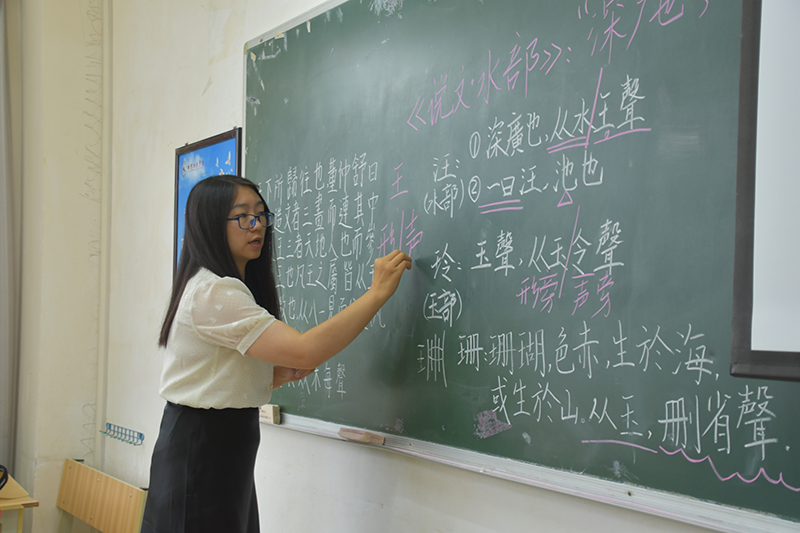 下所歸往也董仲舒曰
者三畫而連其中
三者天地人也而參
王也凡王之屬皆从
海聲
王
声
《说文·水部》:“深广也,
汪:
① 深廣也,从水王聲
(水部) ② 一曰汪,池也
玲:玉聲,从玉令聲
形旁 声旁
(玉部)
珊:珊瑚,色赤,生於海,
或生於山。从玉,删省聲.